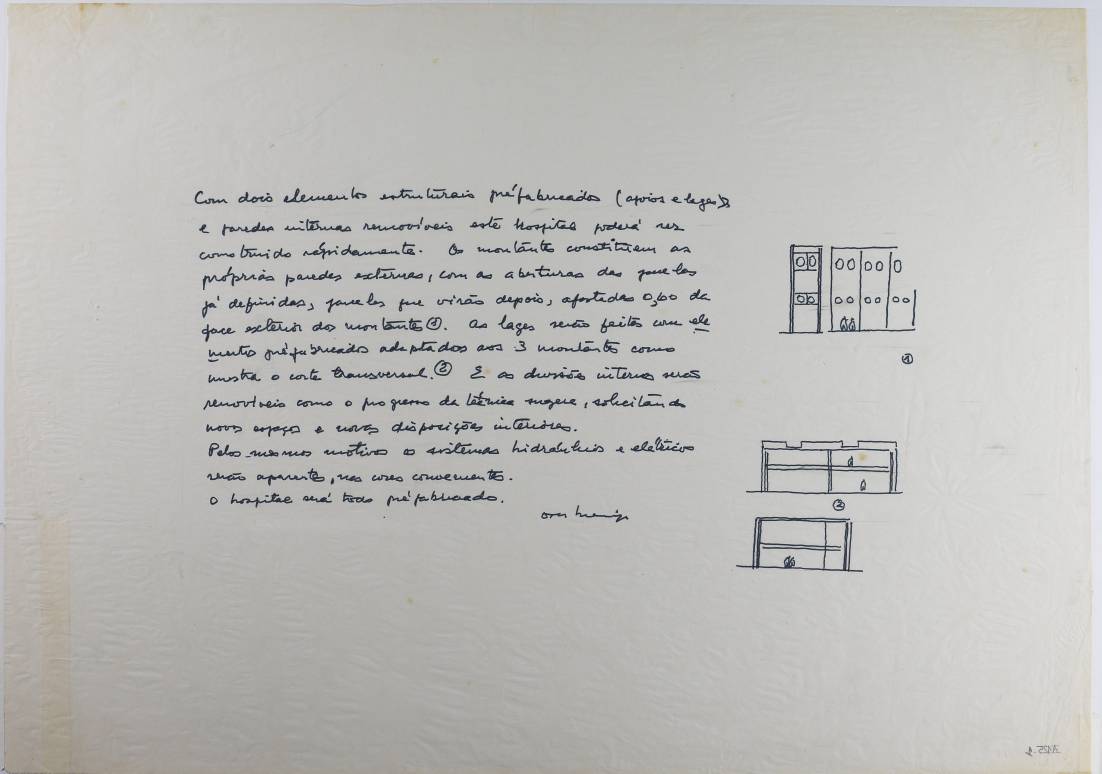 Com dois elementos estruturais pré-fabricados (apoios e lages)
e paredes internas removíveis este hospital poderá ser
construido rápidamente. Os montantes constituem as
próprias paredes externas, com as aberturas das janelas
já definidas, janelas que virão depois, afastadas 0,60 da
face exterior dos montantes ①. As lages serão feitas com ele
mentos pré-fabricados adaptados aos 3 montantes como
mostra o corte transversal. ② E as divisões internas serão
removíveis como o progresso da técnica sugere, solicitando
novos espaços e novas disposições interiores.
Pelos mesmos motivos os sistemas hidráulicos e elétricos
serão aparentes, nas cores convenientes.
O hospital será todo pré-fabricado.
①
②